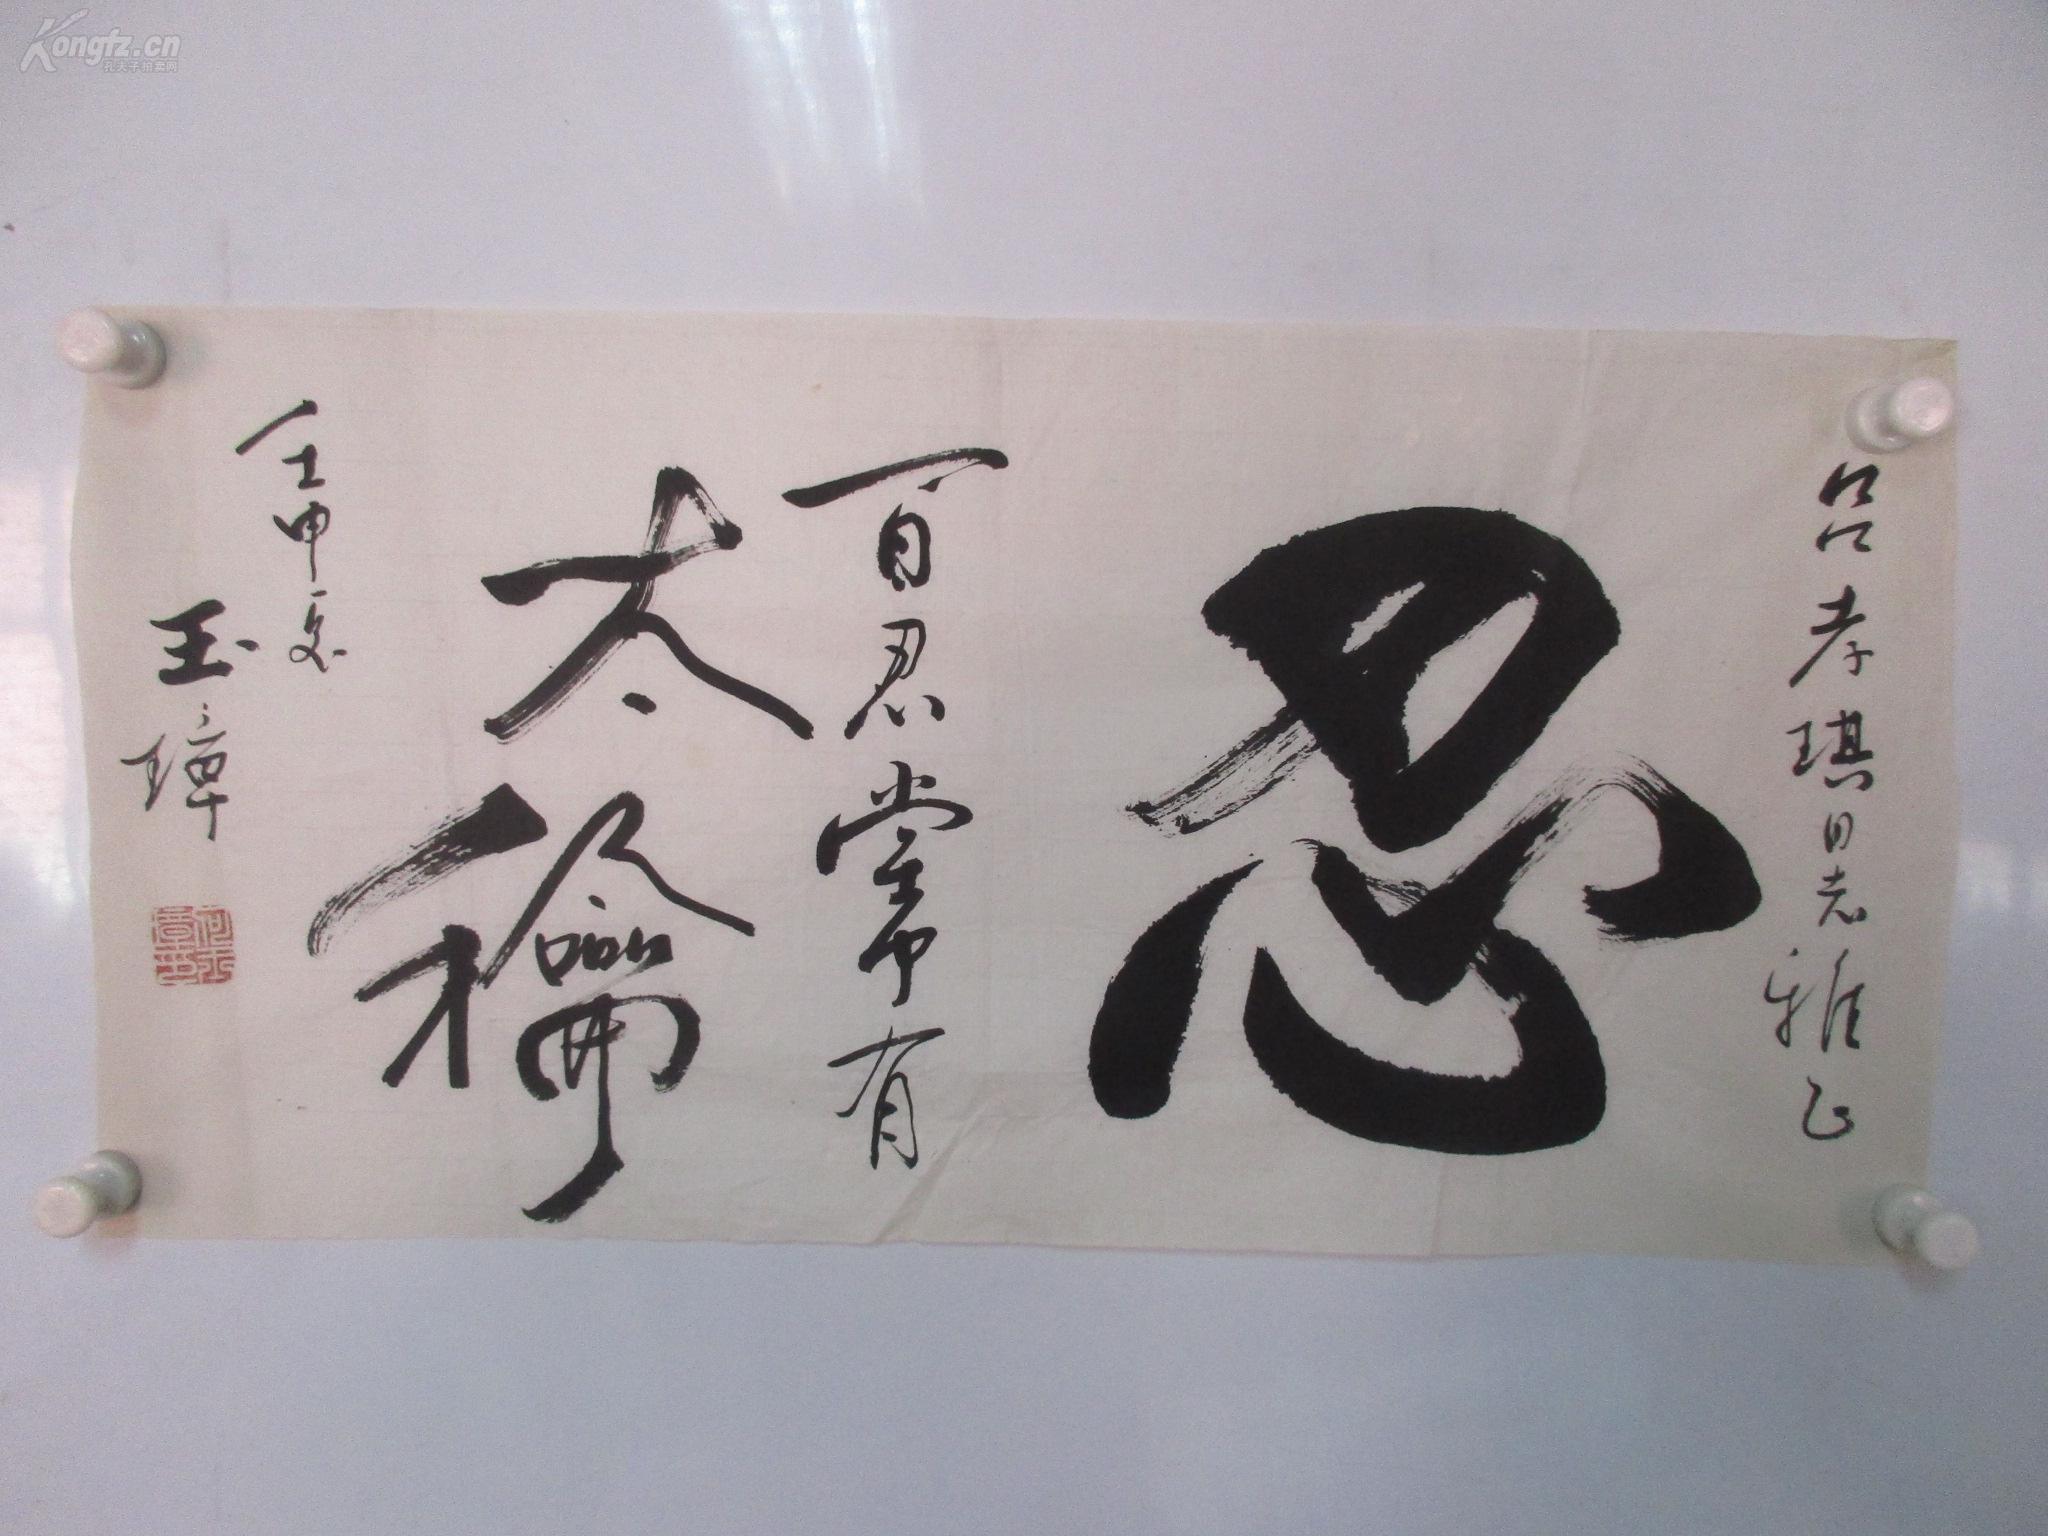 Kongfz.cn
孔夫子拍卖网
吕孝琪同志雅正
忍
百忍堂中有
太龢
壬申
玉璋